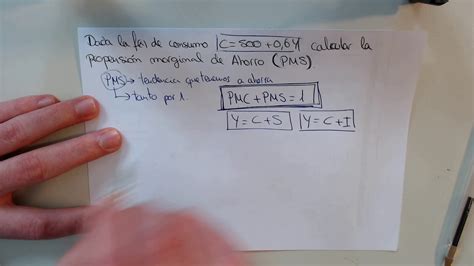 Dada la fón de consumo C = 500 + 0,6Y calcular la
propensión marginal de Ahorro (PMS)
PMS → tendencia que tenemos a ahorra
→ tanto por 1.
PMC + PMS = 1
Y = C + S Y = C + I